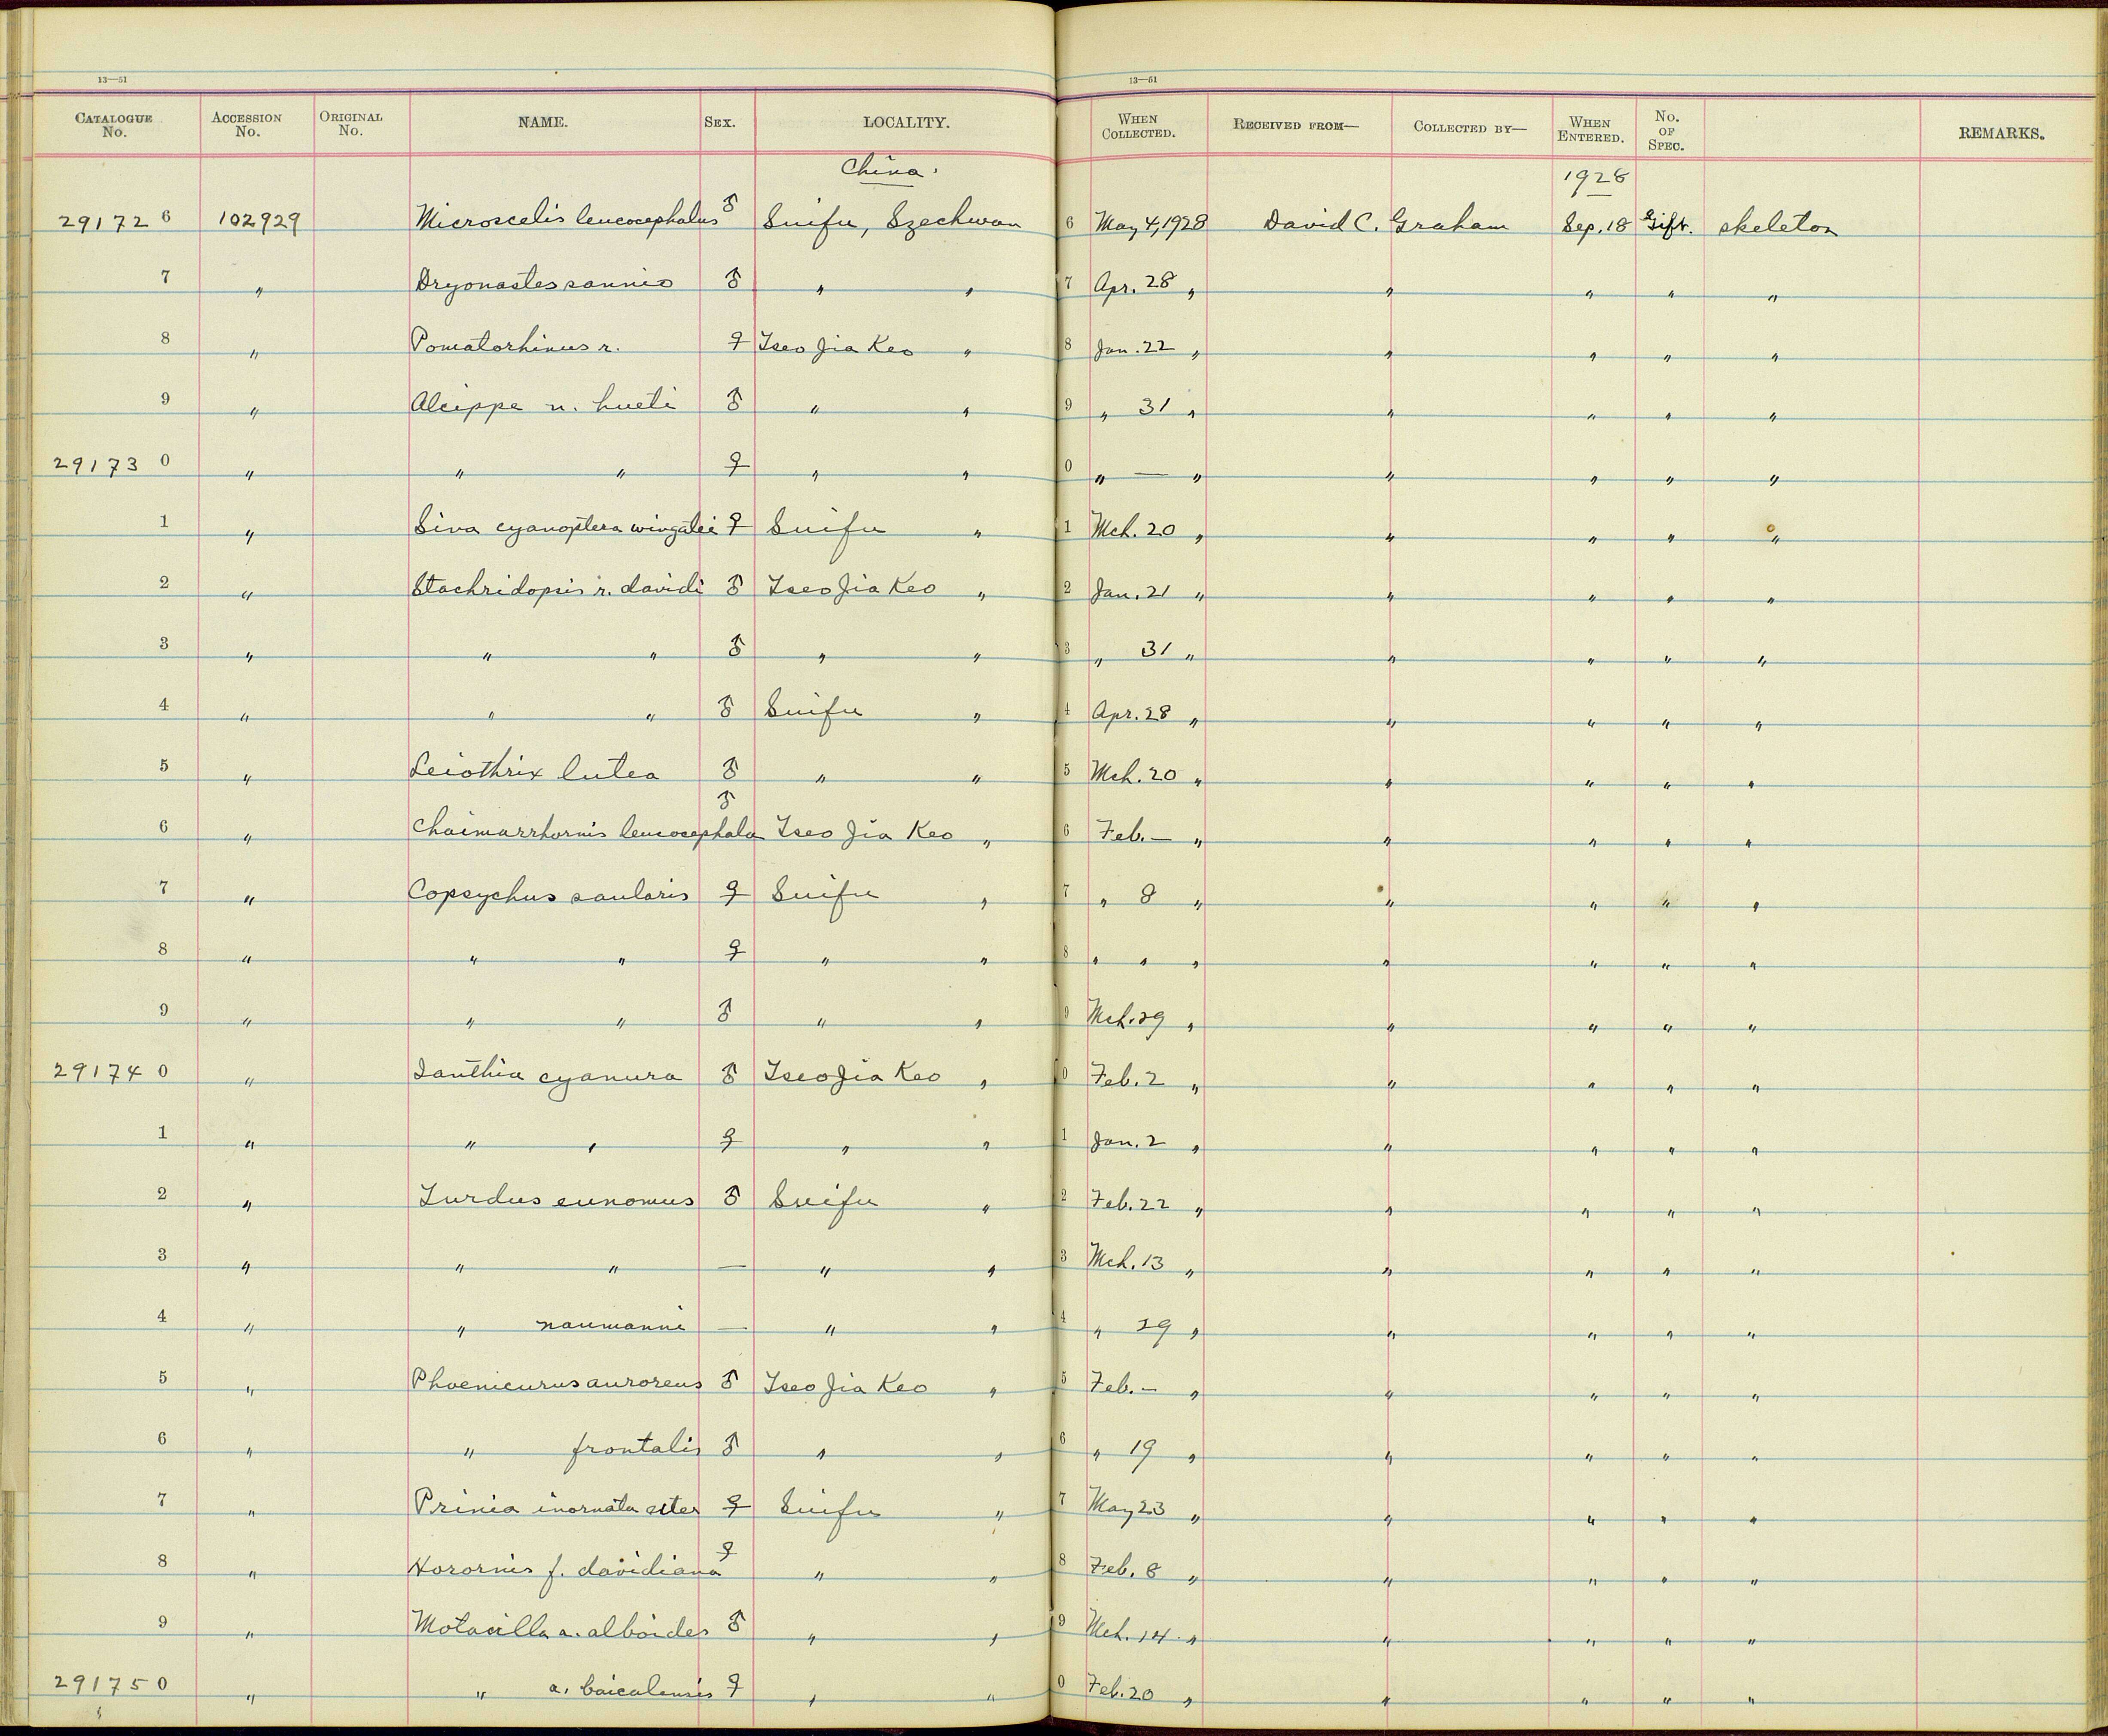 13—51 13—51
CATALOGUE No. ACCESSION No. ORIGINAL No. NAME. SEX. LOCALITY. WHEN COLLECTED. RECEIVED FROM— COLLECTED BY— WHEN ENTERED. No. OF SPEC. REMARKS.
China. 1928
29172 6 102929 Microscelis leucocephalus ♂ Suifu, Szechwan 6 May 4, 1928 David C. Graham Sep. 18 Gift. skeleton
7 " Dryonastes sannio ♂ " " 7 Apr. 28 " " " " "
8 " Pomatorhinus r. ♀ Tseo Jia Keo " 8 Jan. 22 " " " " "
9 " Alcippe n. hueti ♂ " " 9 " 31 " " " " "
29173 0 " " " ♀ " " 0 " — " " " " "
1 " Siva cyanoptera wingatei ♀ Suifu " 1 Mch. 20 " " " " "
2 " Stachridopsis r. davidi ♂ Tseo Jia Keo " 2 Jan. 21 " " " " "
3 " " " ♂ " " 3 " 31 " " " " "
4 " " " ♂ Suifu " 4 Apr. 28 " " " " "
5 " Leiothrix lutea ♂ " " 5 Mch. 20 " " " " "
6 " Chaimarrhornis leucocephala ♂ Tseo Jia Keo " 6 Feb. — " " " " "
7 " Copsychus saularis ♀ Suifu " 7 " 8 " " " " "
8 " " " ♀ " " 8 " " " " " " "
9 " " " ♂ " " 9 Mch. 29 " " " " "
29174 0 " Ianthia cyanura ♂ Tseo Jia Keo " 0 Feb. 2 " " " " "
1 " " " ♀ " " 1 Jan. 2 " " " " "
2 " Turdus eunomus ♂ Suifu " 2 Feb. 22 " " " " "
3 " " " — " " 3 Mch. 13 " " " " "
4 " " naumanni — " " 4 " 29 " " " " "
5 " Phoenicurus auroreus ♂ Tseo Jia Keo " 5 Feb. — " " " " "
6 " " frontalis ♂ " " 6 " 19 " " " " "
7 " Prinia inornata ♀ Suifu " 7 May 23 " " " " "
8 " Horornis f. davidiana ♀ " " 8 Feb. 8 " " " " "
9 " Motacilla a. alboides ♂ " " 9 Mch. 14 " " " " "
29175 0 " " a. baicalensis ♀ " " 0 Feb. 20 " " " " "